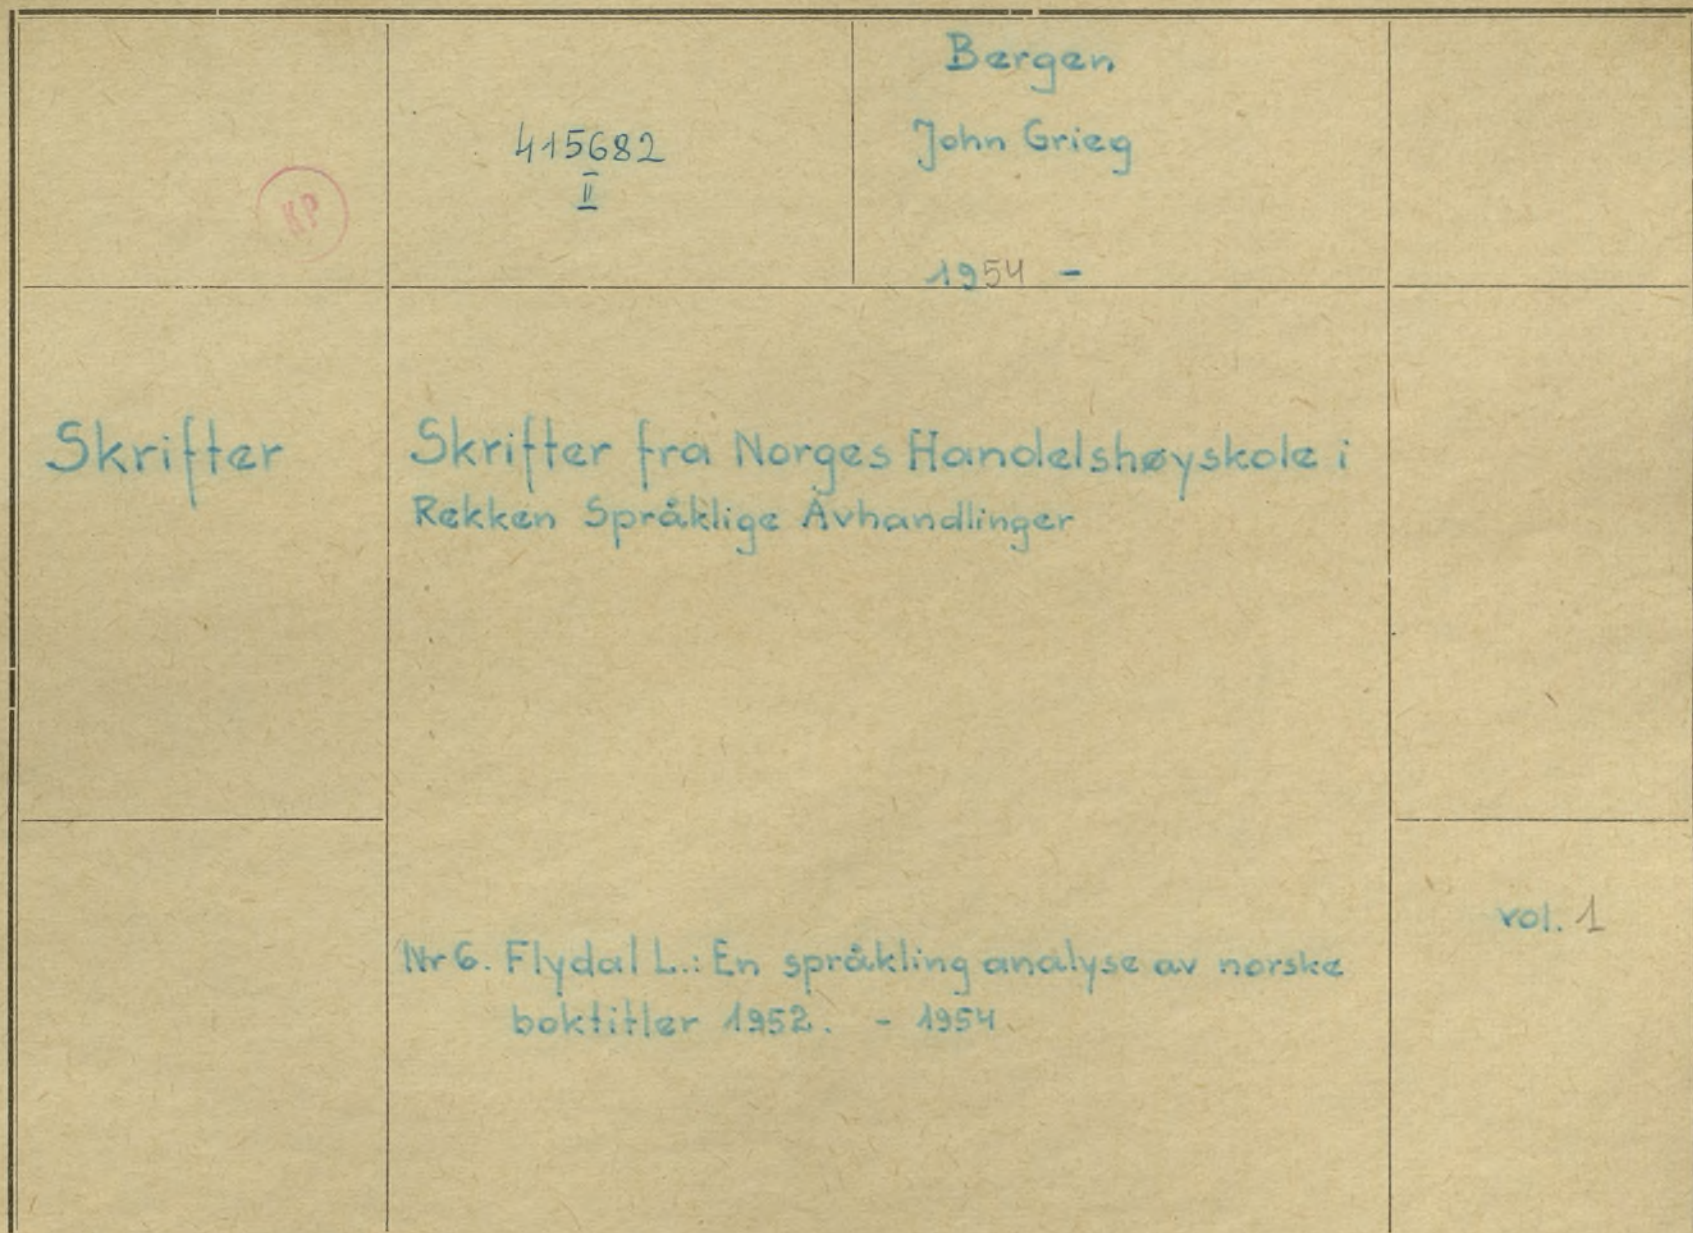 Bergen
John Grieg
1954 -
415682
II
KP
Skrifter
Skrifter fra Norges Handelshøyskole i
Rekken Språklige Avhandlinger
Nr 6. Flydal L.: En språkling analyse av norske
boktitler 1952. - 1954.
vol. 1